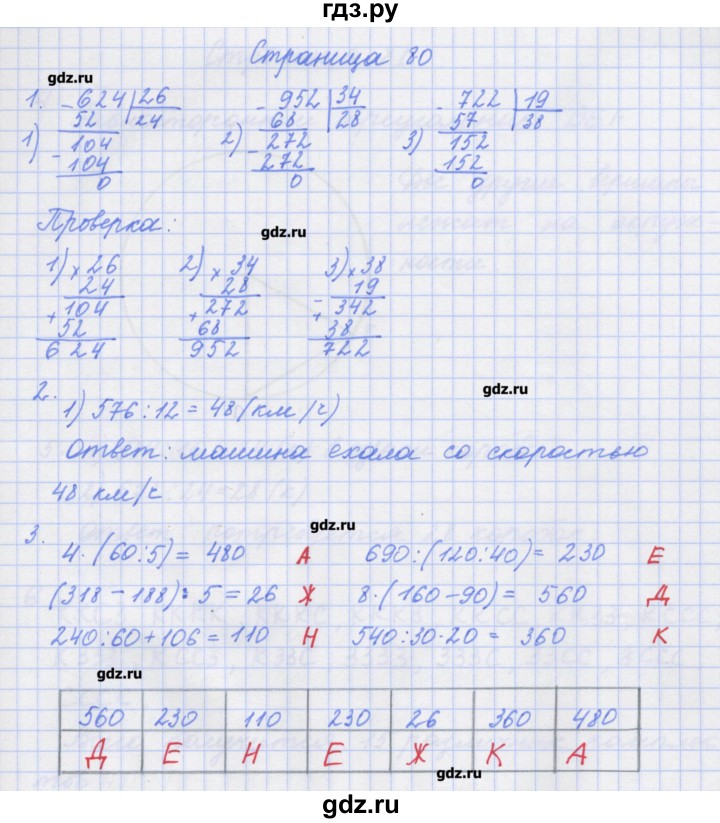 гдз.ру
Страница 80
gdz.ru
1.
1) - 624 | 26
52 | 24
104
- 104
0
2) - 952 | 34
68 | 28
- 272
272
0
3) - 722 | 19
57 | 38
152
152
0
Проверка:
gdz.ru
1) × 26
24
+ 104
52
624
2) × 34
28
+ 272
68
952
3) × 38
19
+ 342
38
722
gdz.ru
2.
1) 576 : 12 = 48 (км/ч)
Ответ: машина ехала со скоростью
48 км/ч
gdz.ru
3.
4 · (60 : 5) = 480 А 690 : (120 : 40) = 230 Е
(318 - 188) : 5 = 26 Ж 8 · (160 - 90) = 560 Д
240 : 60 + 106 = 110 Н 540 : 30 · 20 = 360 К
gdz.ru
560 230 110 230 26 360 480
Д Е Н Е Ж К А
gdz.ru
gdz.ru